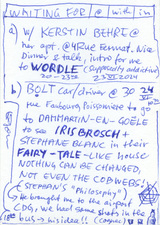 WAITING FOR @ with in
a) w/ KERSTIN BEHRE @
her apt. @ 4Rue Fermat. Nice
Dinner & talk, intro for me
to WORDLE (supposedly addictive)
b) BOLT car/driver @ 30
rue Faubourg Poissonière to go
to DAMMARTIN-EN-GOËLE
to see IRIS BROSCH +
STEPHANE BLANC in their
FAIRY-TALE-LIKE house
NOTHING CAN BE CHANGED,
NOT EVEN THE COBWEBS!
(STEPHAN'S "Philosophy")
He brought me to the airport
CDG, we had some shots in the
bus → his idea!!